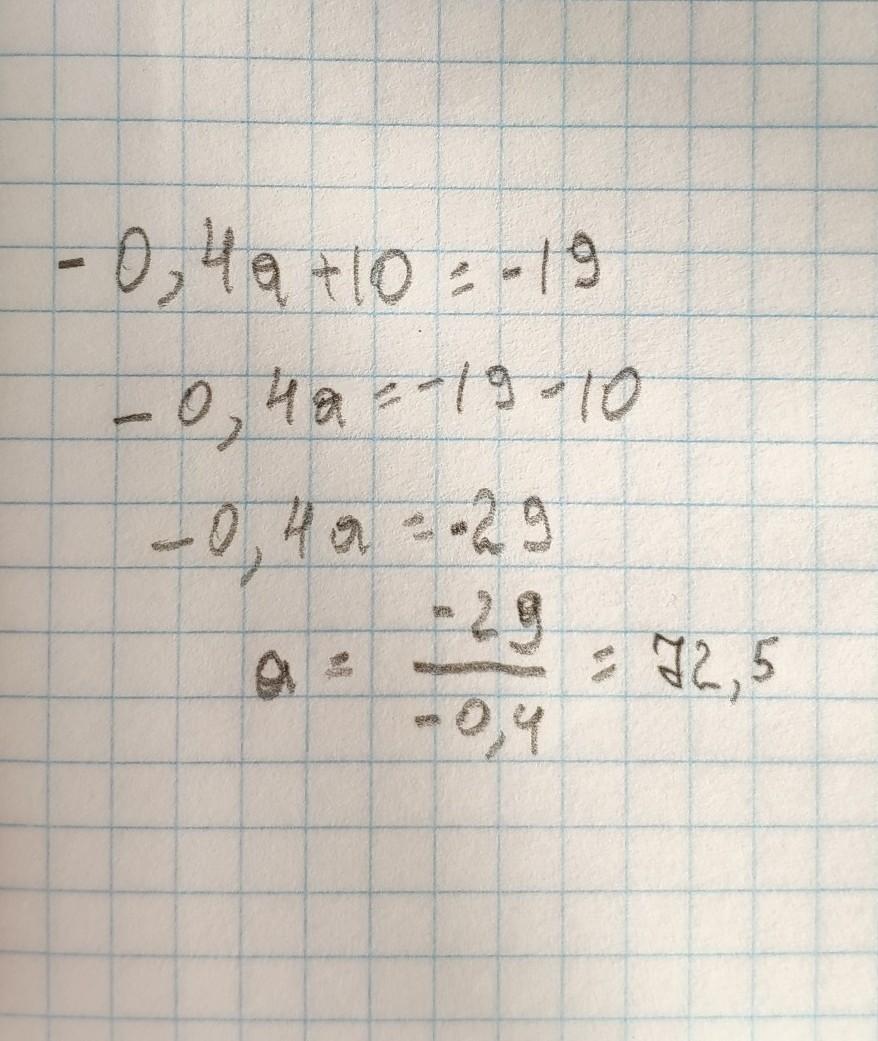 -0,4a+10=-19
-0,4a=-19-10
-0,4a=-29
a = -29/-0,4 = 72,5